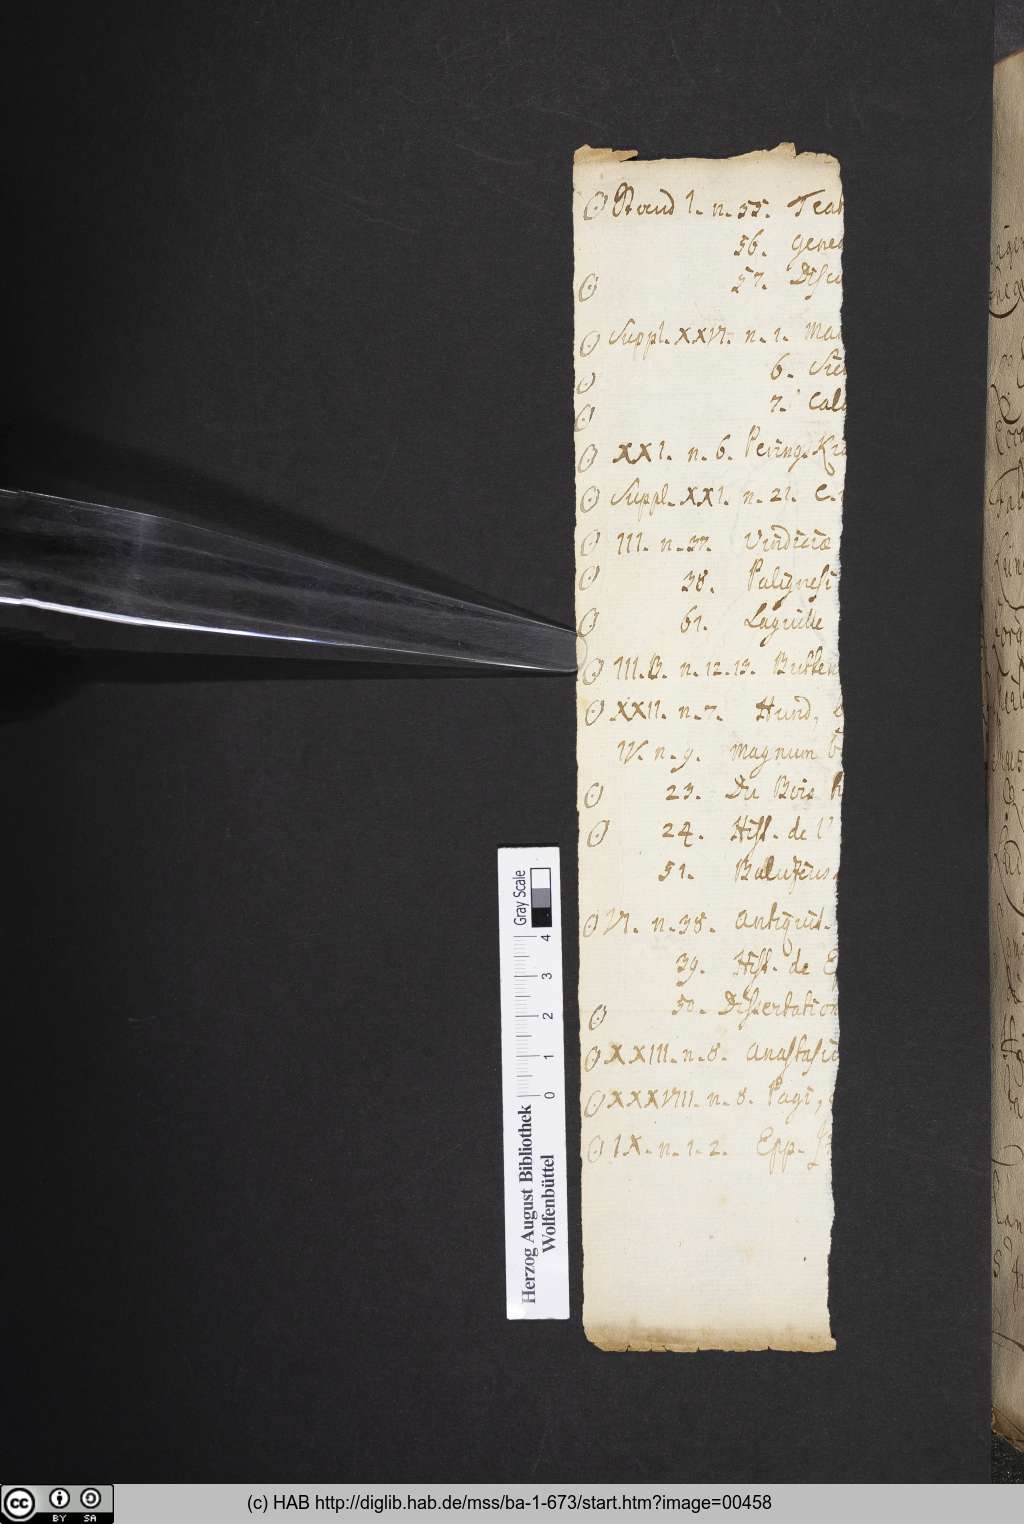 Band I. n. 55. Teat
56. genea
57. Discu
Suppl. XXVI. n. 1. Mar
6. Sue
7. Cale
XXI. n. 6. Pering. Kra
Suppl. XXI. n. 21. C.
III. n. 37. Vindiciæ
38. Palignesi
61. Laguille
III. B. n. 12. 13. Butken
XXII. n. 7. Hund,
IV. n. 9. Magnum
23. Du Bois h
24. Hist. de l'
51. Baluzius
VI. n. 38. Antiquit.
39. Hist. de E
50. Dissertation
XXIII. n. 8. Anastasiu
XXXVIII. n. 8. Pagi,
IX. n. 1. 2. Epp.
Gray Scale
4 3 2 1 0
Herzog August Bibliothek
Wolfenbüttel
cc BY SA
(c) HAB http://diglib.hab.de/mss/ba-1-673/start.htm?image=00458